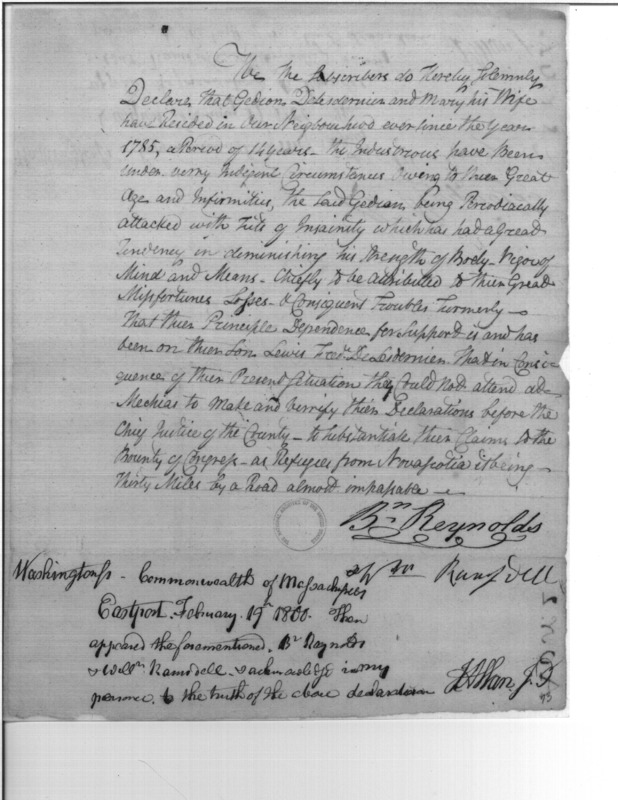 We the Subscribers do Hereby Solemnly
Declare that Gedion Delesdernier and Mary his Wife
have Resided in our Neigbourhood ever since the Year
1785, a Period of 14 Years - tho Industrious have Been
under verry Indigent Circumstances Oweing to their Great
Age and Infirmities, the Said Gedion being Periodiacally
attacked with Fits of Insainity which has had a Great
Tendency in diminishing his Strength of Body - Vigor of
Mind and Means - Chiefly to be attributed to their Great
Missfortunes Losses - & Consiquent Troubles Formerly -
That their Principle Dependence for Support is and has
been on their Son Lewis Fredk Delesdernier That in Consi-
quence of their Present Situation they Could not attend at
Mechias to Make and verrify their Declarations before the
Chief Justice of the County - to Substantiate their Claims to the
Bounty of Congress - as Refugees from Novascotia it being
Thirty Miles by a Road almost impassable -
Bn Reynolds
Wm Ramsdell
Washington Ss - Commonwealth of Massachusetts
Eastport February 19th 1800. Then
appeared the forementioned, Bn Raynolds
& Willm Ramsdell, & acknowledge in my
presence, to the truth of the above declaration